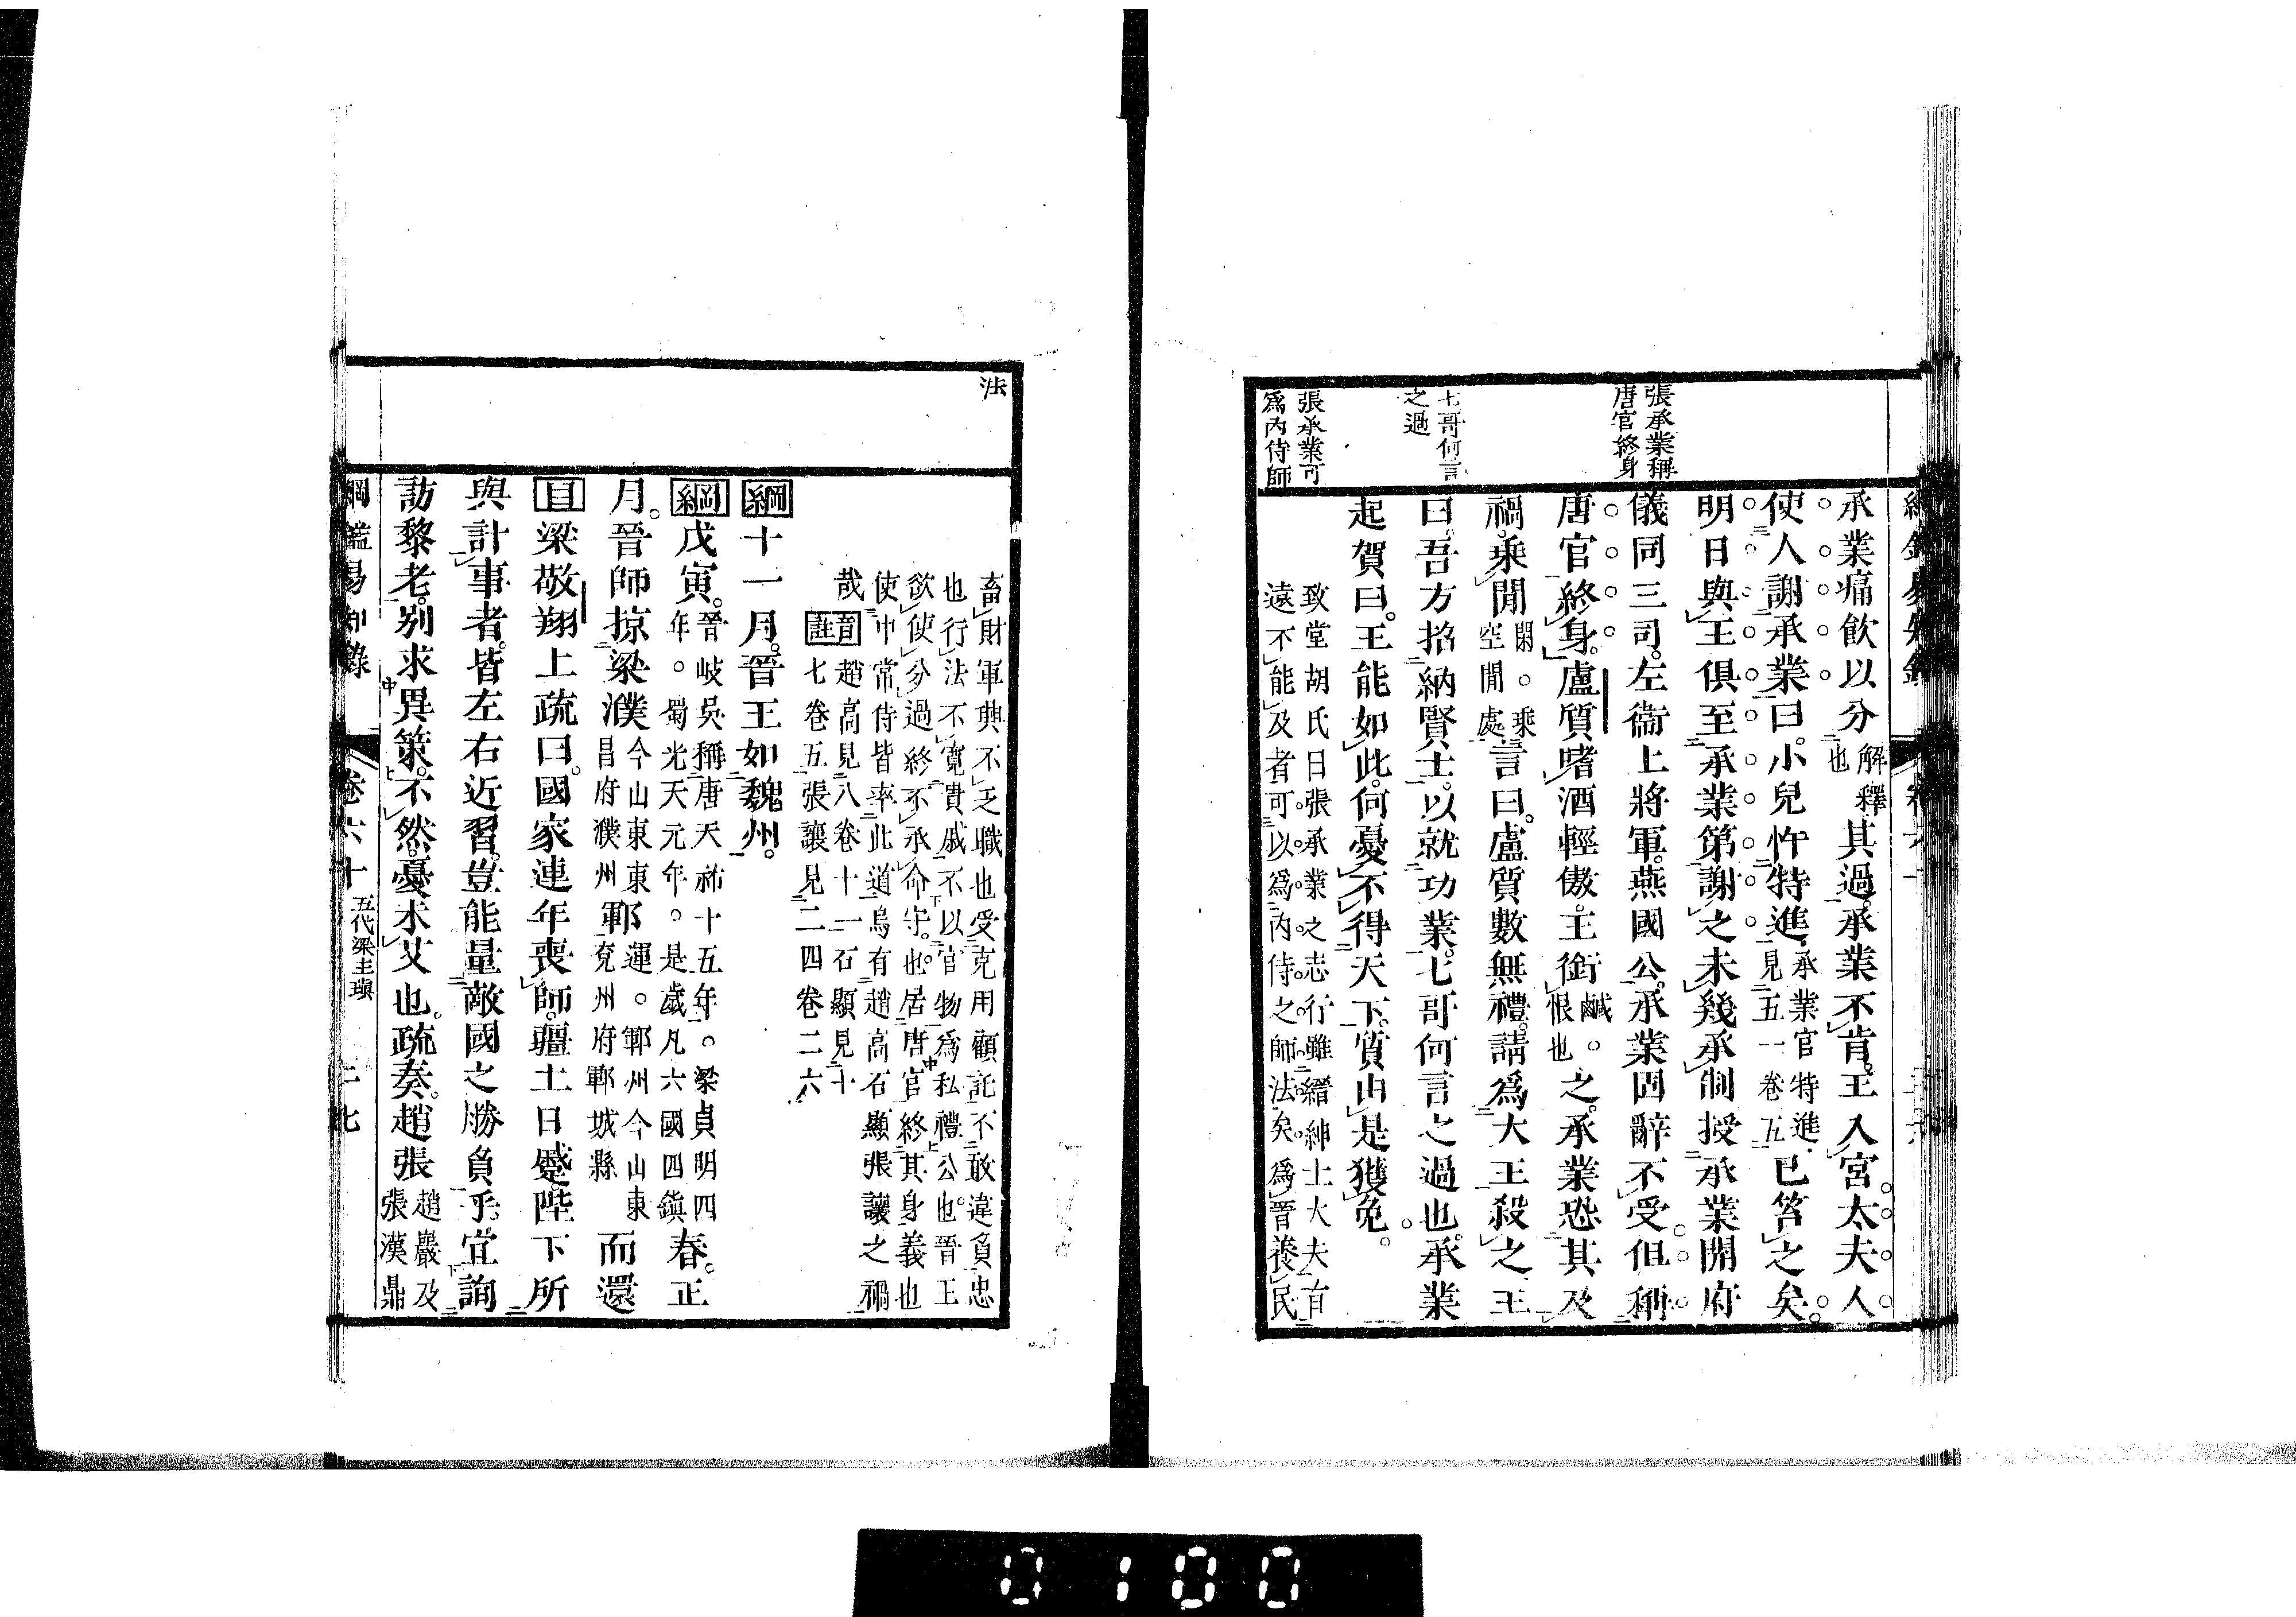 張承業稱
唐官終身
七哥何言
之過
張承業可
爲內侍師
承業痛飲以分解釋也其過。承業不肯。王入宮。太夫人
使人謝承業曰。小兒忤特進。承業官特進。見五一卷五已笞之矣。
明日與王俱至承業第謝之。未幾承制授承業開府
儀同三司。左衞上將軍。燕國公。承業固辭不受。但稱
唐官終身。盧質嗜酒輕傲。王銜鹹。恨也之。承業恐其及
禍。乘閒閑。乘空閒處言曰。盧質數無禮。請爲大王殺之。王
曰。吾方招納賢士。以就功業。七哥何言之過也。承業
起賀曰。王能如此。何憂不得天下。質由是獲免。
致堂胡氏曰張承業之志行雖縉紳士大夫有
遠不能及者可以爲內侍之師法矣爲晉養民
法
畜財軍興不乏職也受克用顧託不敢違負忠
也行法不寬貴戚不以官物爲私禮公也晉王
欲使分過終不承命守也居唐官終其身義也
使中常侍皆率此道烏有趙高石顯張讓之禍
哉音註趙高見八卷十一石顯見十
七卷五張讓見二四卷二六
綱十一月。晉王如魏州。
綱戊寅。晉岐吳稱唐天祐十五年。梁貞明四年。蜀光天元年。是歲凡六國四鎮春。正
月。晉師掠梁濮今山東東昌府濮州鄆運。鄆州今山東兗州府鄆城縣而還
目梁敬翔上疏曰。國家連年喪師。疆土日蹙。陛下所
與計事者。皆左右近習。豈能量敵國之勝負乎。宜詢
訪黎老。別求異策。不然憂未艾也。疏奏。趙張趙巖及張漢鼎
綱鑑易知錄
卷六十
五代梁主瑱